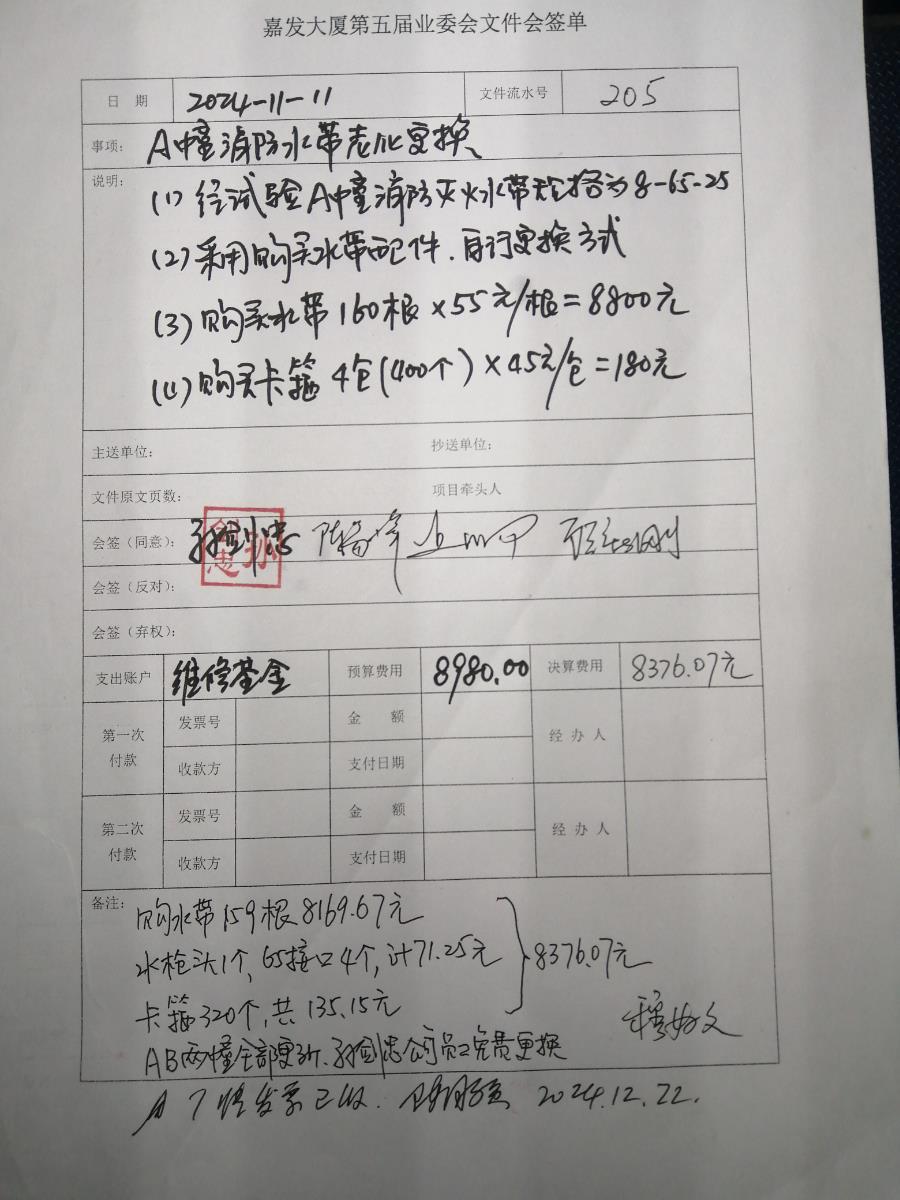 嘉发大厦第五届业委会文件会签单
日 期 2024-11-11 文件流水号 205
事项: A幢消防水带老化更换
说明: (1) 经试验A幢消防灭火水带规格为8-65-25
(2) 采用购买水带配件、自行更换方式
(3) 购买水带160根×55元/根=8800元
(4) 购买卡箍4包(400个)×45元/包=180元
主送单位: 抄送单位:
文件原文页数: 项目牵头人
会签(同意):
会签(反对):
会签(弃权):
支出账户 维修基金 预算费用 8980.00 决算费用 8376.07元
第一次付款 发票号 金 额 经办人
收款方 支付日期
第二次付款 发票号 金 额 经办人
收款方 支付日期
备注: 购水带159根8169.67元
水枪头1个,65接口4个,计71.25元 8376.07元
卡箍320个,共135.15元
AB两幢全部更新、孙剑忠公司员工免费更换
发票已收. 2024.12.22.